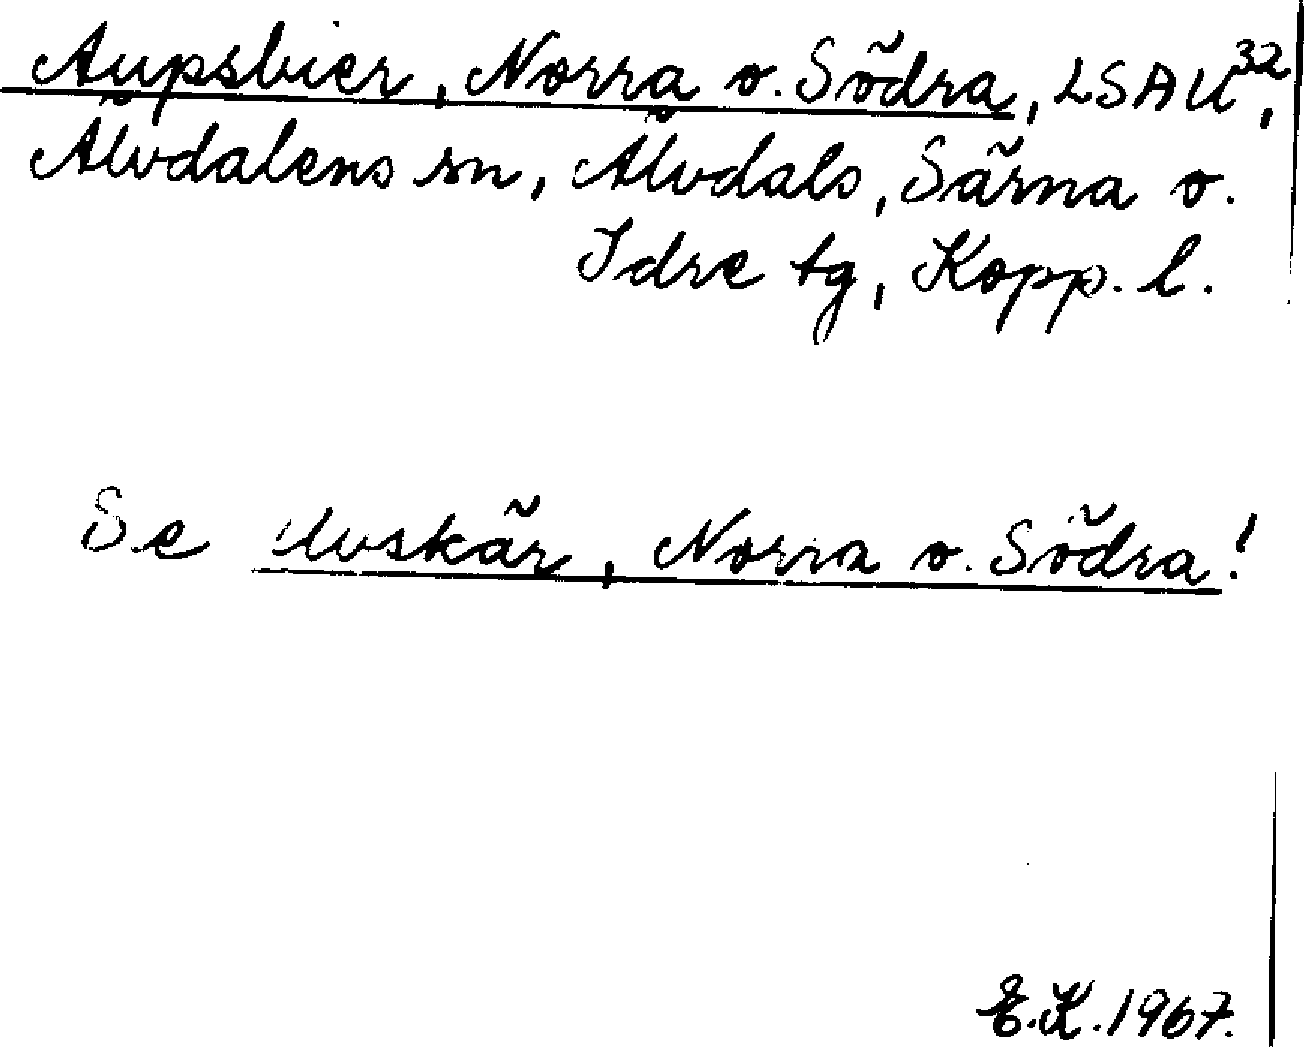 Aupsbier, Norra o. Södra, LSAU 32,
Älvdalens sn, Älvdals, Särna o.
Idre tg, Kopp. l.
Se Norra o. Södra!
E.K. 1967.